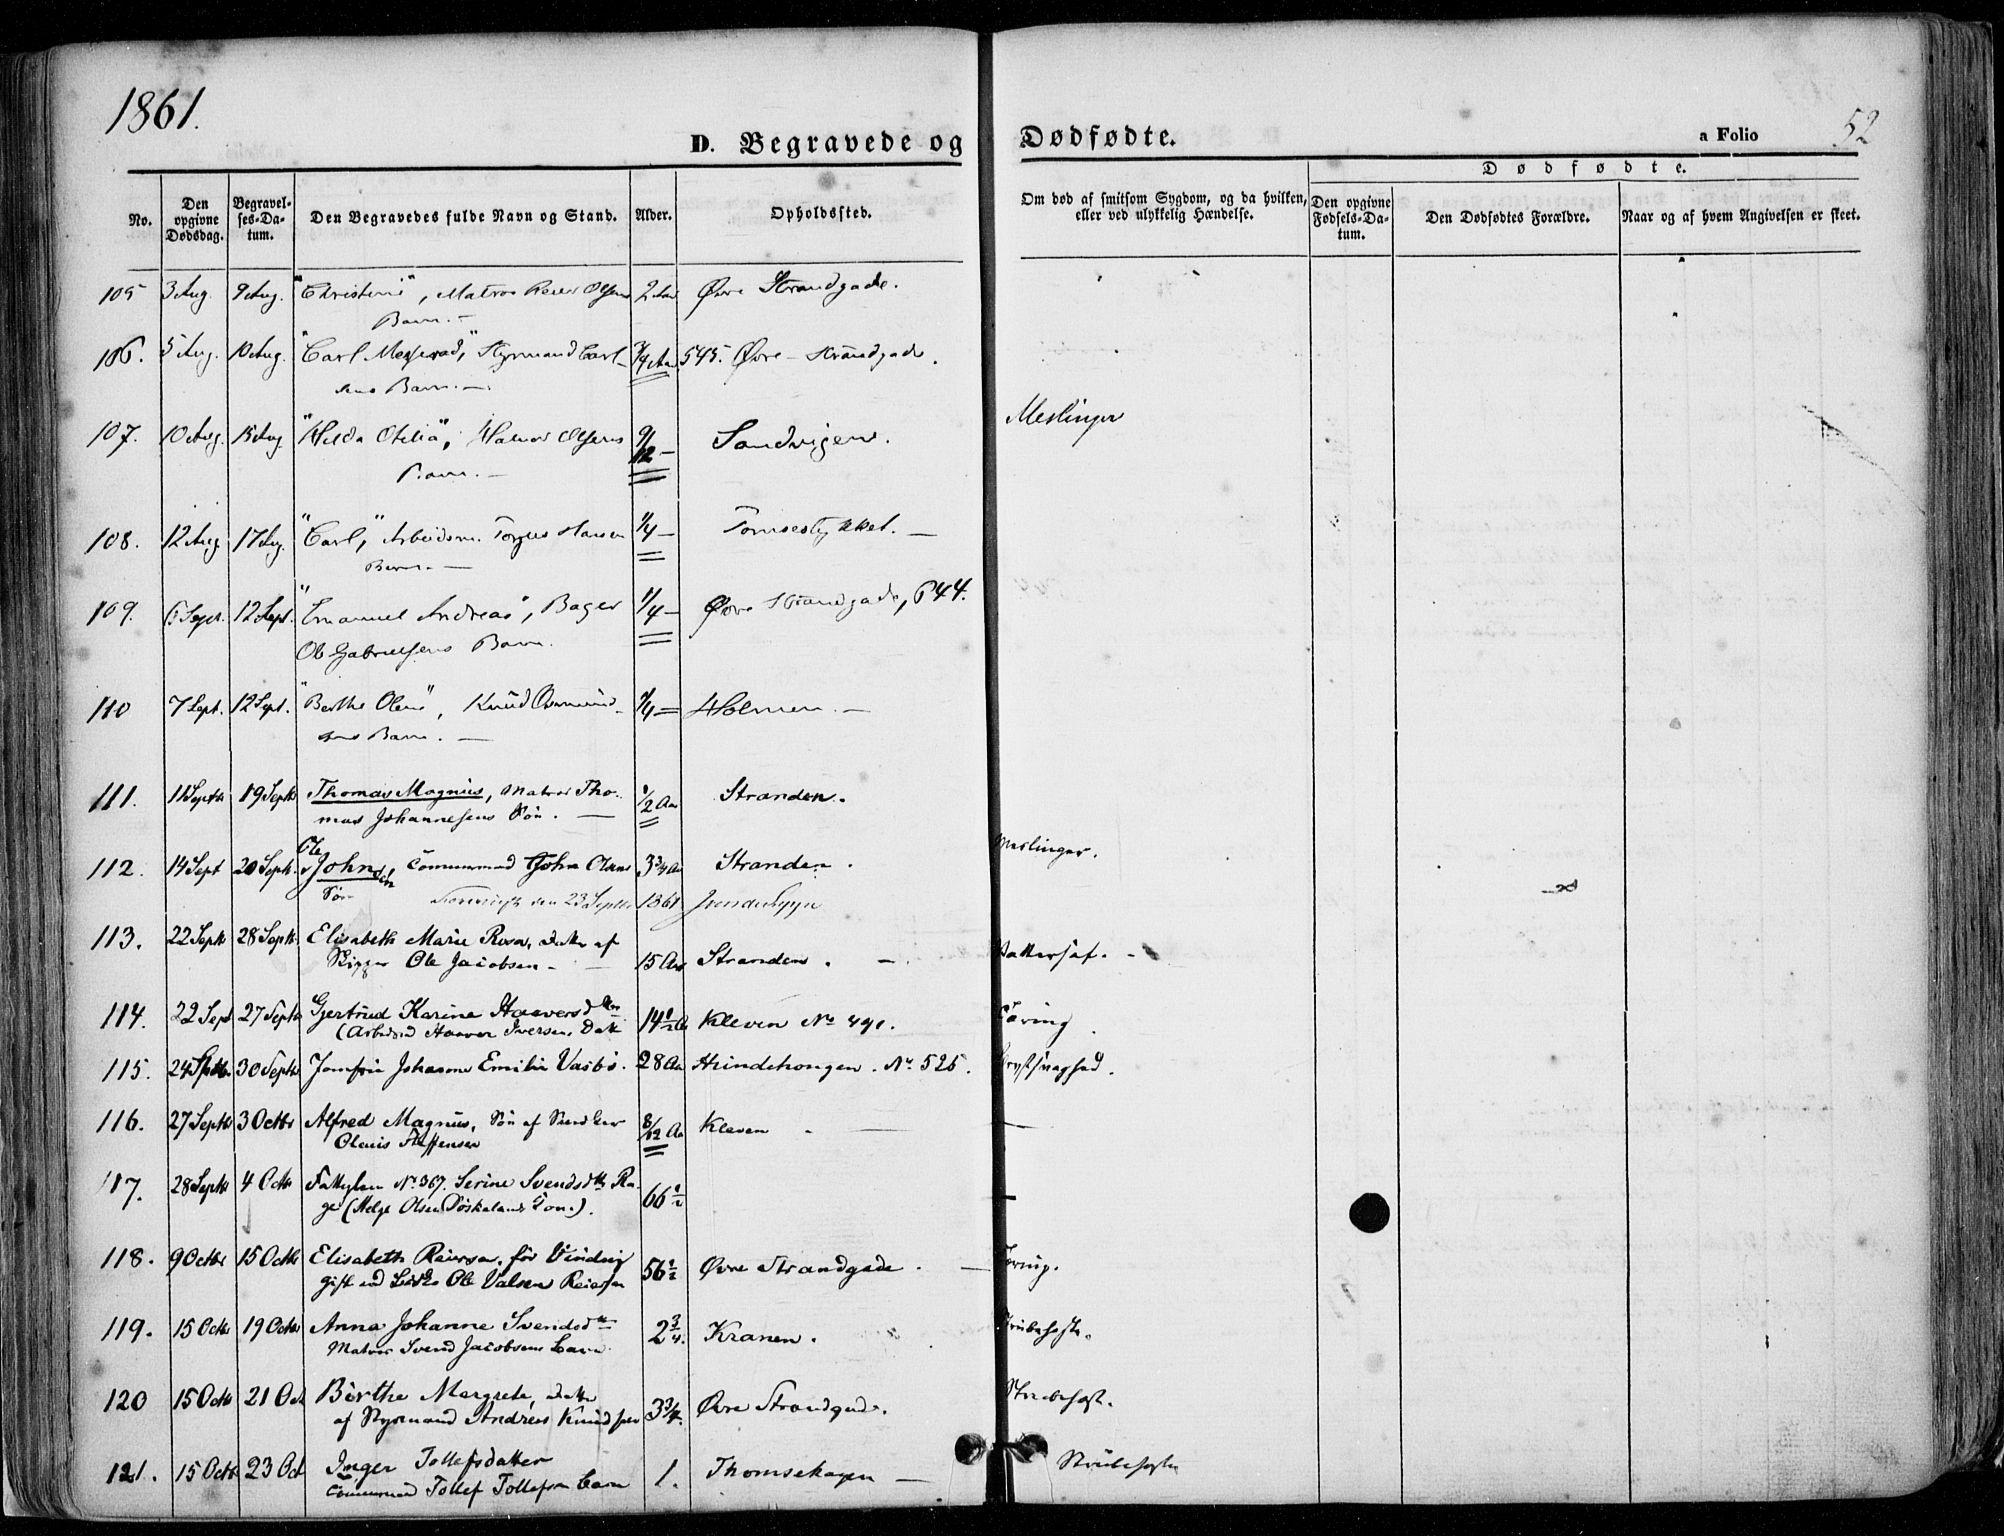 1861.
D. Begravede og Dødfødte.
a Folio 52
No.
Den opgivne Dødsdag.
Begravelses-Datum.
Den Begravedes fulde Navn og Stand.
Alder.
Opholdssted.
Om død af smitsom Sygdom, og da hvilken, eller ved ulykkelig Hændelse.
Dødfødte.
Den opgivne Fødsels-Datum.
Den Dødfødtes Forældre.
Naar og af hvem Angivelsen er skeet.
105 3 Aug. 9 Aug. "Christine", Matros Olsens 2 Aar Øvre Strandgade.
Barn. —
106. 5 Aug. 10 Aug. "Carl", Styrmand Carl- 3/4 Aar 545. Øvre - Strandgade.
sens Barn. —
107. 10 Aug. 15 Aug "Hilda Otilia", Halvor Olsens 9/12 — Sandvigen. Meslinger
Barn. —
108. 12 Aug. 17 Aug. "Carl," Arbeidsm. Torjus Hansen 1/4 — Tomsestykket. —
Barn. —
109. 6 Sept. 12 Sept. "Emanuel Andreas", Bager 1/4 — Øvre Strandgade, 644.
Ole Gabrielsens Barn.
110 7 Sept. 12 Sept. "Berthe Oline", Knud Osmund- 1/4 Holmen. —
sens Barn. —
111. 11 Septbr 19 Septbr Thomas Magnus, Matros Tho- 1/2 Aar Stranden.
mas Johannesens Søn. —
Ole
112. 14 Sept 20 Septbr. John John Olsens 3 3/4 Aar Stranden. Meslinger.
Søn den 23 Septbr 1861
113. 22 Septbr 28 Septbr Elisabeth Marie Rosa, Datter af
Skipper Ole Jacobsen — 15 Aar Stranden. — Vattersot. —
114. 22 Sept 27 Septbr Gjertrud Karine Haaversdtter 14 1/2 Aar Kleven No 491. Tæring
(Arbeidsmd Haaver Iversens Datt
115. 24 Septbr 30 Septbr Jomfru Johanne Emilie Vasbø. 28 Aar No 525. Brystsvaghed.
116. 27 Septbr 3 Octbr Alfred Magnus, Søn af 8/12 Aar Kleven —
Olaus Steffensen
117. 28 Septbr 4 Octbr Fattiglem No 367. Serine Svendsdtr Ra-
ge (Helge Olsen Kone). 66 1/2 —
118. 9 Octbr 15 Octbr Elisabeth Reiersen, før Vinding
gift med Ole Valsen Reiersen 56 1/2 Øvre Strandgade. — Tæring.
119. 15 Octbr 19 Octbr Anna Johanne Svendsdtr 2 3/4. Kranen. Strubehoste.
Matros Svend Jacobsens Barn.
120 15 Octbr 21 Oct Birthe Margrete, Datter Strubehost.
af Styrmand Andreas Knudsen 3 3/4. Øvre Strandgade.
121. 15 Octbr 23 Oct Inger Tollefsdatter 1. Thomsehagen — Strubehoste
Tollef Tollefsen Barn